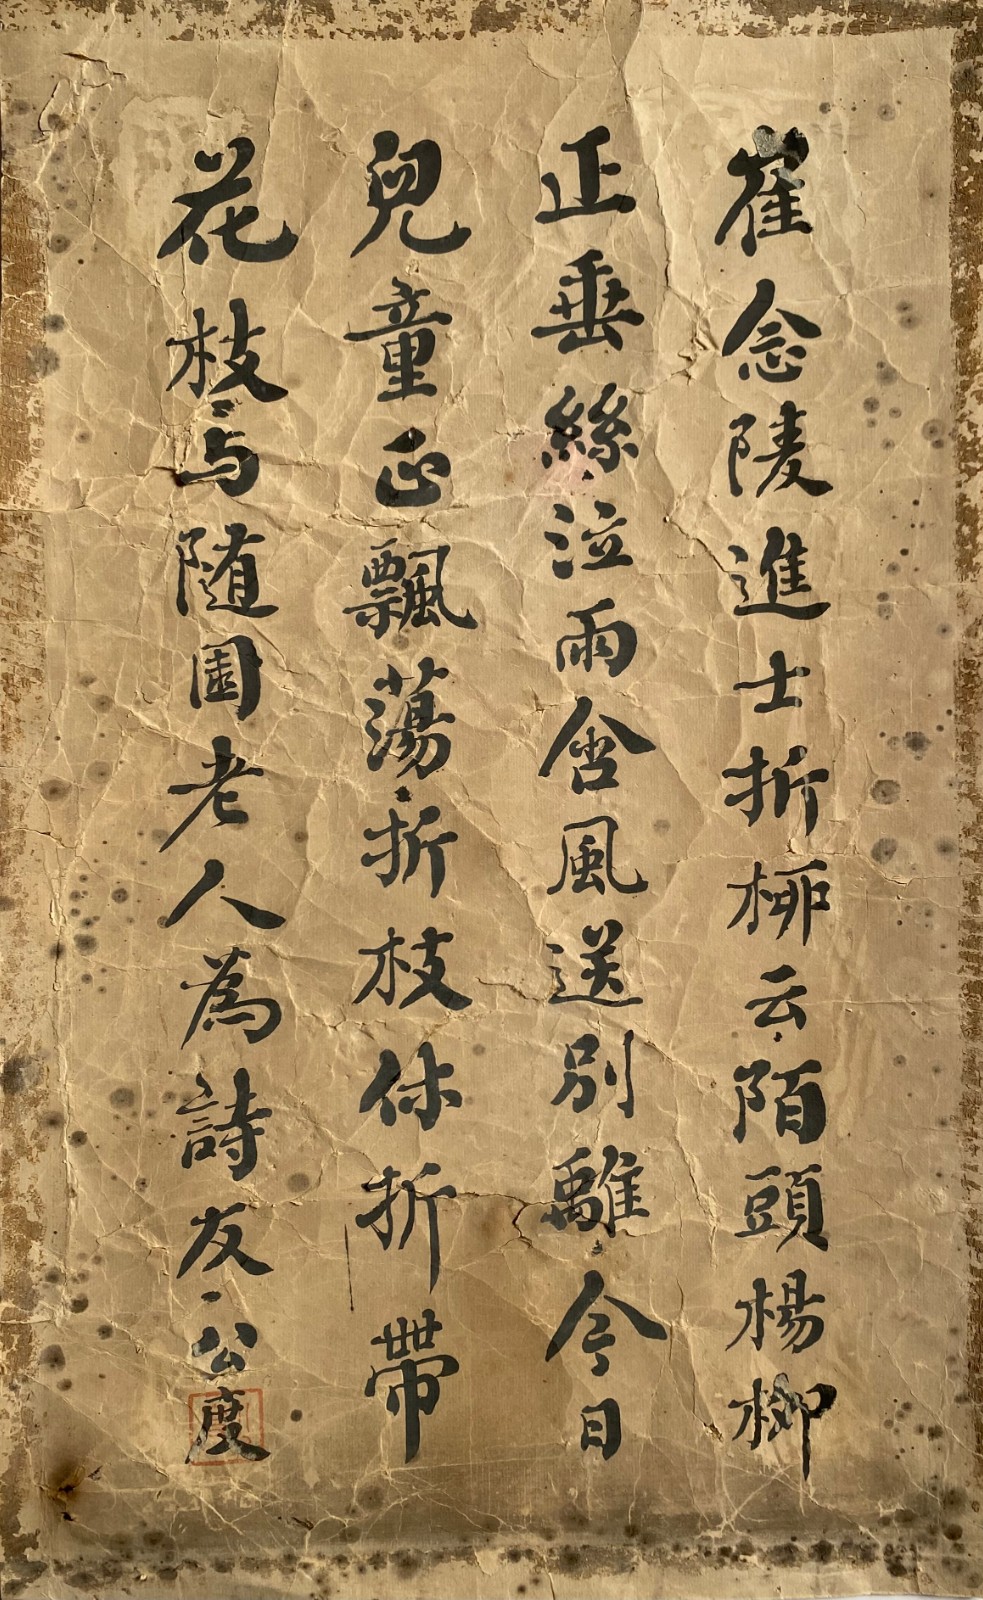 崔念陵進士折柳云陌頭楊柳
正垂絲泣雨含風送別離今日
兒童正飄蕩折枝休折帶
花枝与随園老人為詩友公度